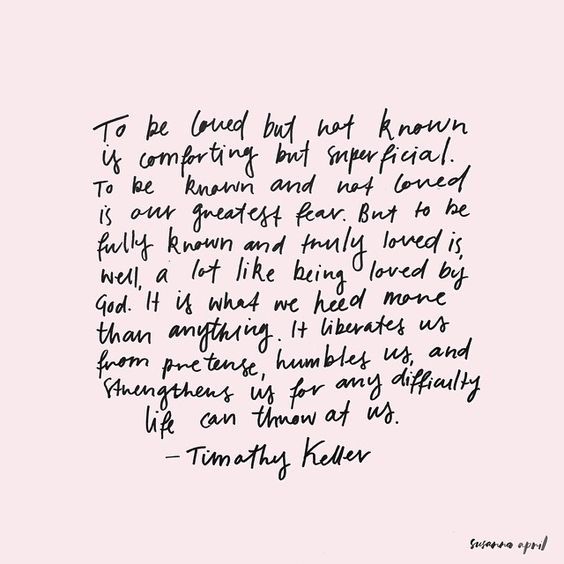 To be loved but not known
is comforting but superficial.
To be known and not loved
is our greatest fear. But to be
fully known and truly loved is,
well, a lot like being loved by
God. It is what we need more
than anything. It liberates us
from pretense, humbles us, and
strengthens us for any difficulty
life can throw at us.
– Timothy Keller
susanna april